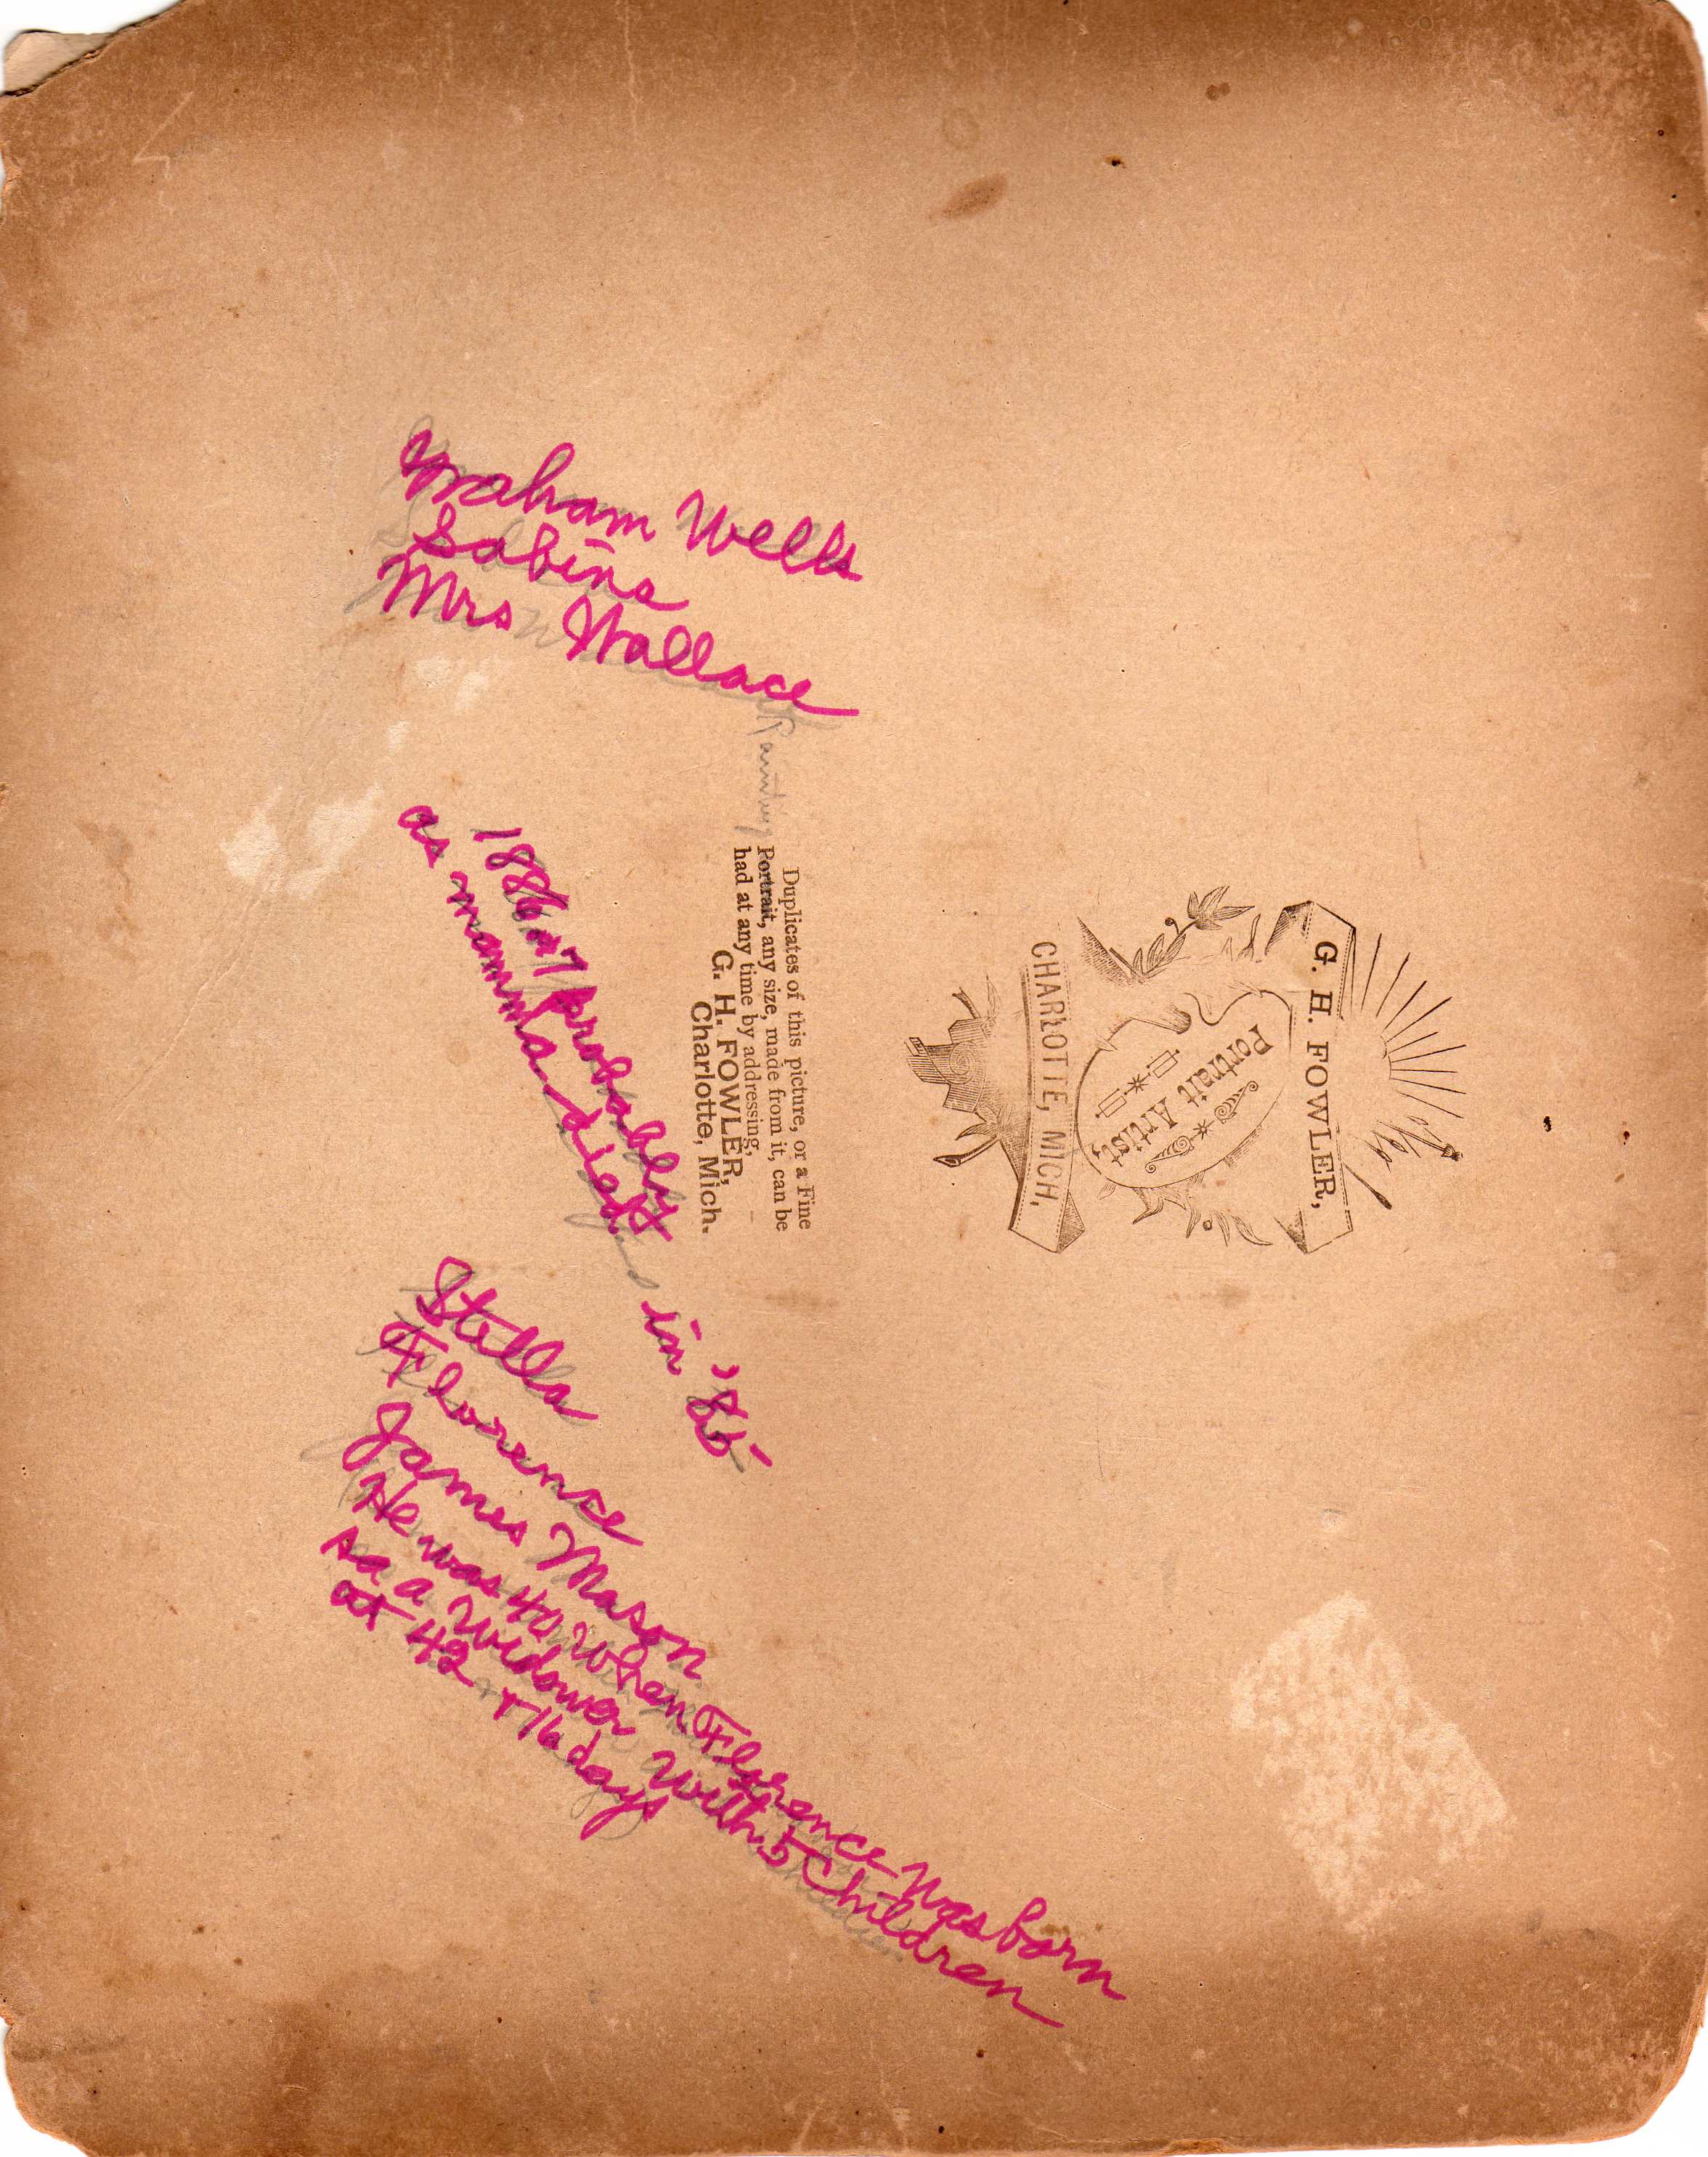 Graham Wells
Sabina
Mrs Wallace
1886 or 7 probably
as mamma died in '85
Stella
Florence
James Mason
He was 40 when Florence was born
as a widower with 5 children
at 42 + 16 days
G. H. FOWLER,
Portrait Artist
CHARLOTTE, MICH.
Duplicates of this picture, or a Fine
Painting Portrait, any size, made from it, can be
had at any time by addressing,
G. H. FOWLER,
Charlotte, Mich.